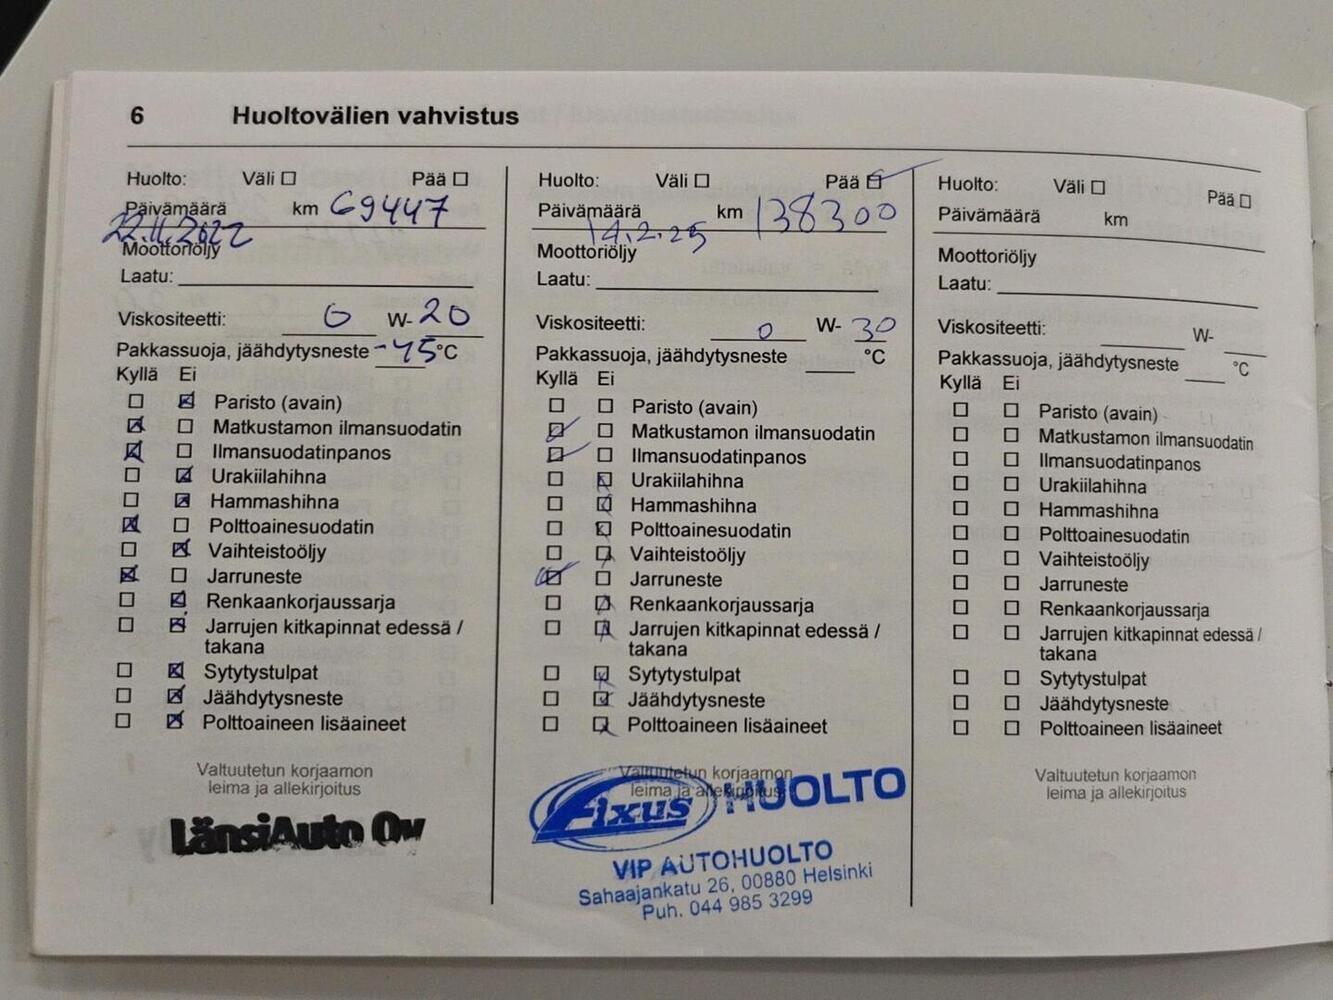 6 Huoltovälien vahvistus
Huolto: Väli Pää
Päivämäärä km 69447
22.11.2022
Moottoriöljy
Laatu:
Viskositeetti: 0 W- 20
Pakkassuoja, jäähdytysneste -45 °C
Kyllä Ei
Paristo (avain)
Matkustamon ilmansuodatin
Ilmansuodatinpanos
Urakiilahihna
Hammashihna
Polttoainesuodatin
Vaihteistoöljy
Jarruneste
Renkaankorjaussarja
Jarrujen kitkapinnat edessä /
takana
Sytytystulpat
Jäähdytysneste
Polttoaineen lisäaineet
Valtuutetun korjaamon
leima ja allekirjoitus
LänsiAuto Oy
Huolto: Väli Pää
Päivämäärä km 138300
14.2.25
Moottoriöljy
Laatu:
Viskositeetti: 0 W- 30
Pakkassuoja, jäähdytysneste °C
Kyllä Ei
Paristo (avain)
Matkustamon ilmansuodatin
Ilmansuodatinpanos
Urakiilahihna
Hammashihna
Polttoainesuodatin
Vaihteistoöljy
Jarruneste
Renkaankorjaussarja
Jarrujen kitkapinnat edessä /
takana
Sytytystulpat
Jäähdytysneste
Polttoaineen lisäaineet
Valtuutetun korjaamon
leima ja allekirjoitus
Fixus HUOLTO
VIP AUTOHUOLTO
Sahaajankatu 26, 00880 Helsinki
Puh. 044 985 3299
Huolto: Väli Pää
Päivämäärä km
Moottoriöljy
Laatu:
Viskositeetti: W-
Pakkassuoja, jäähdytysneste °C
Kyllä Ei
Paristo (avain)
Matkustamon ilmansuodatin
Ilmansuodatinpanos
Urakiilahihna
Hammashihna
Polttoainesuodatin
Vaihteistoöljy
Jarruneste
Renkaankorjaussarja
Jarrujen kitkapinnat edessä /
takana
Sytytystulpat
Jäähdytysneste
Polttoaineen lisäaineet
Valtuutetun korjaamon
leima ja allekirjoitus